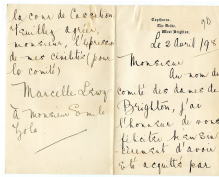 la cour de Cassation.
Veuillez agréer,
monsieur, l'expression
de mes civilités (pour
le comité)
Marcelle Lewy
à Monsieur Emile
Zola.
The Drive,
West Brighton.
Le 2 Avril /98
Monsieur
Au nom du
comité des dames de
Brighton, j'ai
l'honneur de vous
féliciter
d'avoir
été acquitté par